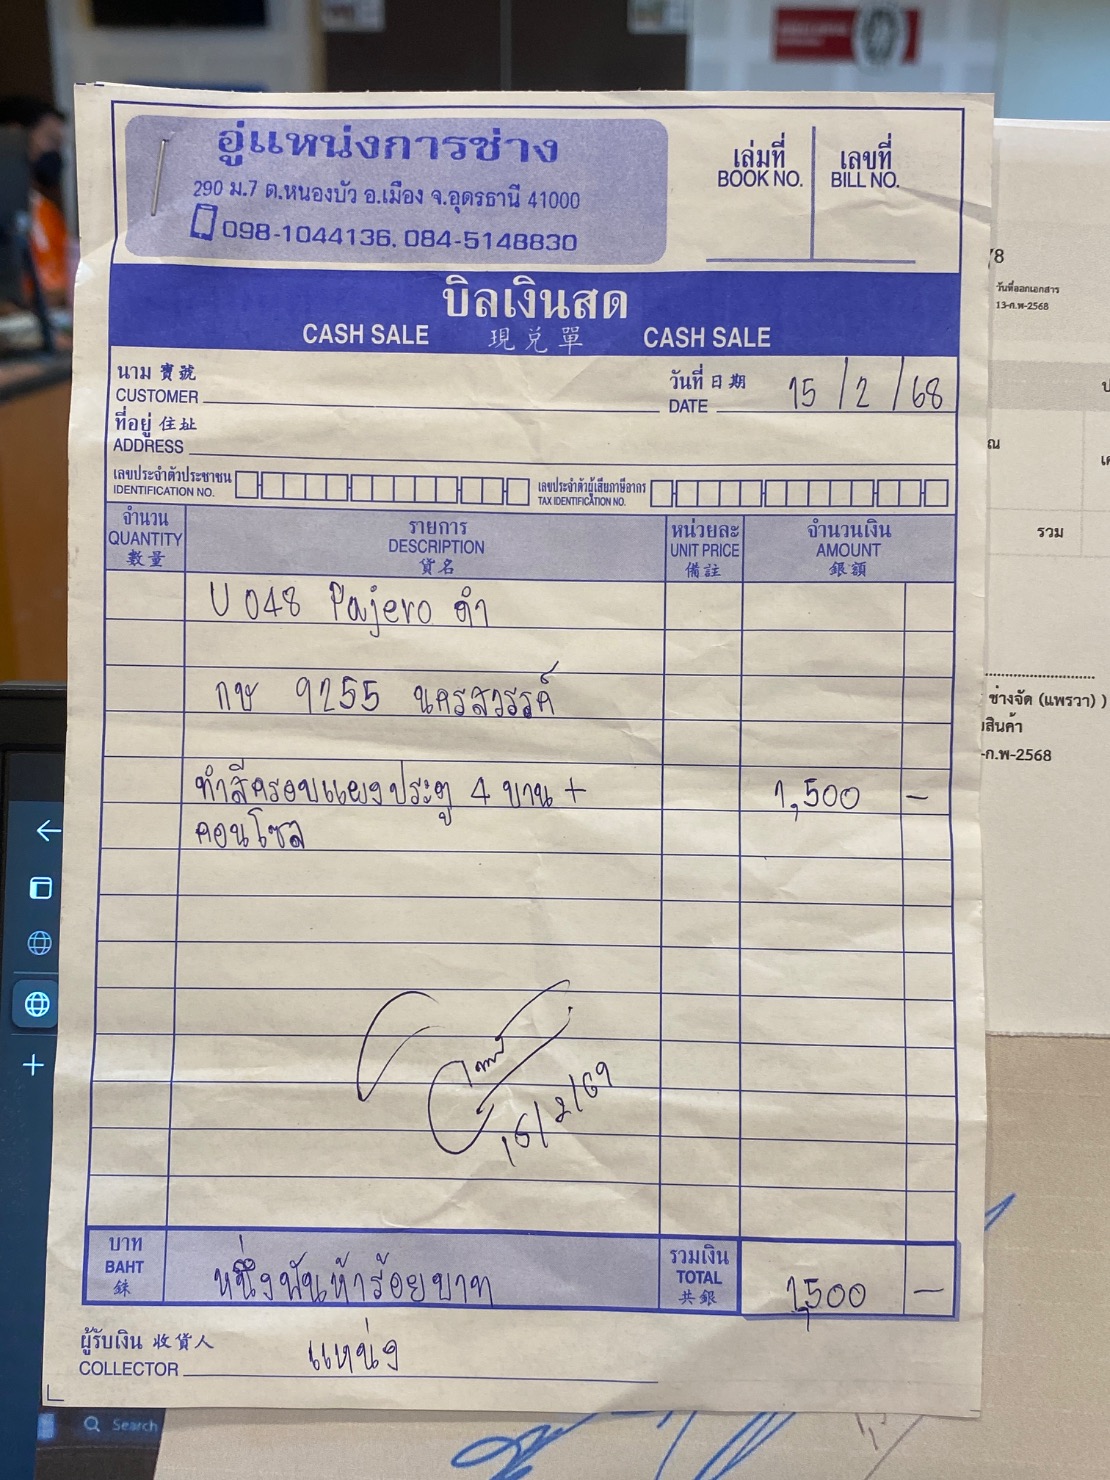 อู่แหน่งการช่าง
290 ม.7 ต.หนองบัว อ.เมือง จ.อุดรธานี 41000
098-1044136, 084-5148830
เล่มที่ เลขที่
BOOK NO. BILL NO.
บิลเงินสด
CASH SALE 現兌單 CASH SALE
นาม 寶號
CUSTOMER
วันที่ 日期
DATE 15/2/68
ที่อยู่ 住址
ADDRESS
เลขประจำตัวประชาชน
IDENTIFICATION NO.
เลขประจำตัวผู้เสียภาษีอากร
TAX IDENTIFICATION NO.
จำนวน รายการ หน่วยละ จำนวนเงิน
QUANTITY DESCRIPTION UNIT PRICE AMOUNT
數量 貨名 備註 銀額
U 048 Pajero ดำ
กษ 9255 นครสวรรค์
ทำสีครอบแผงประตู 4 บาน + 1,500 –
คอนโซล
บาท
BAHT
銖
หนึ่งพันห้าร้อยบาท
รวมเงิน
TOTAL
共銀
1,500 –
ผู้รับเงิน 收貨人
COLLECTOR แหน่ง
/8
วันที่ออกเอกสาร
13-ก.พ-2568
รวม
ช่างจัด (แพรวา) )
-ก.พ-2568
Search